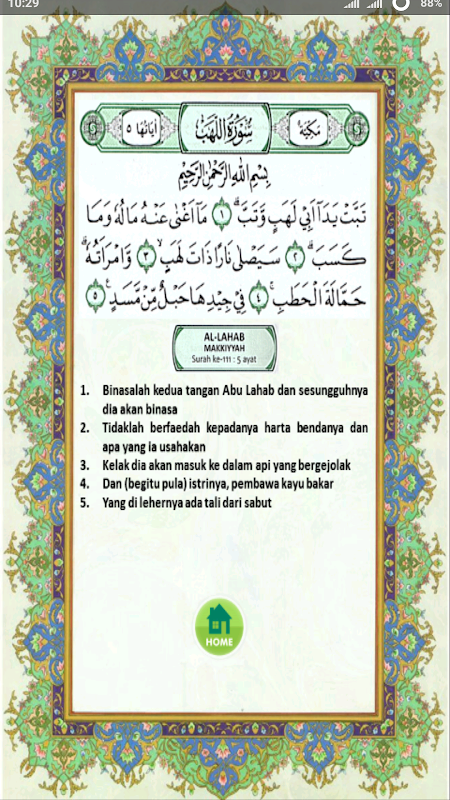 10:29
88%
أياتها ٥
سُوْرَةُ اللَّهَبِ
مَكِيَّة
بِسْمِ اللهِ الرَّحْمٰنِ الرَّحِيْمِ
تَبَّتْ يَدَآ اَبِيْ لَهَبٍ وَّتَبَّۗ ١ مَآ اَغْنٰى عَنْهُ مَالُهٗ وَمَا
كَسَبَۗ ٢ سَيَصْلٰى نَارًا ذَاتَ لَهَبٍۙ ٣ وَّامْرَاَتُهٗۗ
حَمَّالَةَ الْحَطَبِۚ ٤ فِيْ جِيْدِهَا حَبْلٌ مِّنْ مَّسَدٍ ٥
AL-LAHAB
MAKKIYYAH
Surah ke-111 : 5 ayat
1. Binasalah kedua tangan Abu Lahab dan sesungguhnya
dia akan binasa
2. Tidaklah berfaedah kepadanya harta bendanya dan
apa yang ia usahakan
3. Kelak dia akan masuk ke dalam api yang bergejolak
4. Dan (begitu pula) istrinya, pembawa kayu bakar
5. Yang di lehernya ada tali dari sabut
HOME